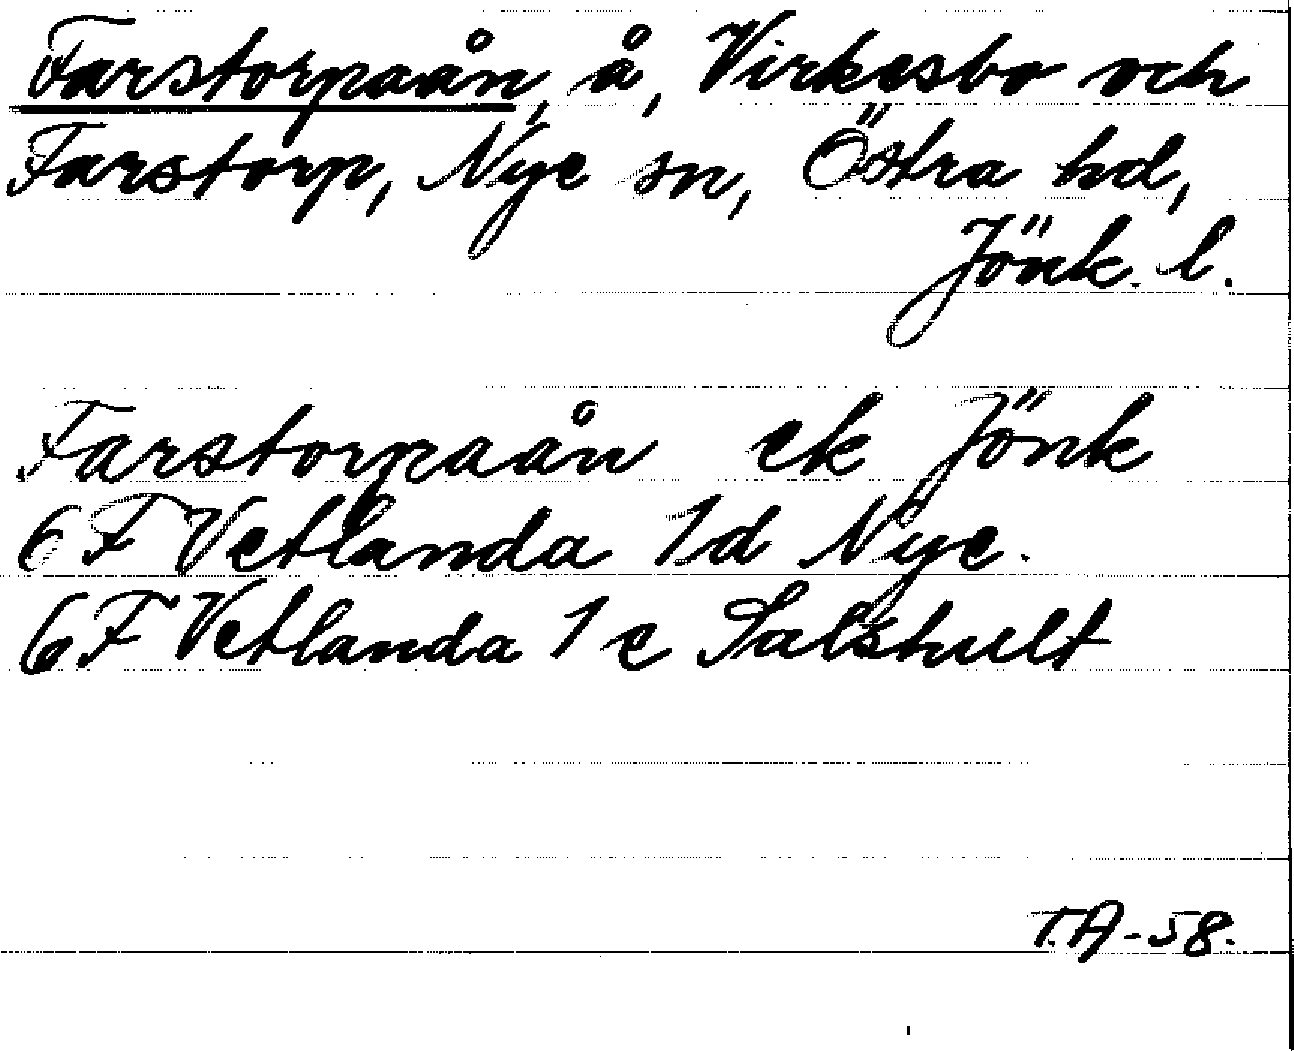 Farstorpaån, å, Virkesbo och
Farstorp, Nye sn, Östra hd,
Jönk. l.
Farstorpaån ek Jönk
6F Vetlanda 1d Nye.
6F Vetlanda 1c Salshult
T.A-58.